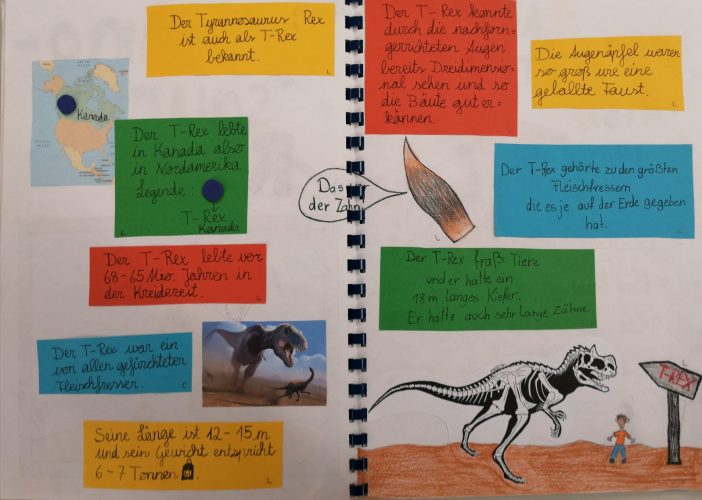 Der Tyrannosaurus Rex
ist auch als T-Rex
bekannt.
Kanada
Der T-Rex lebte
in Kanada also
in Nordamerika
Legende:
T-Rex
Kanada
Der T-Rex lebte vor
68-65 Mio. Jahren in
der Kreidezeit.
Der T-Rex war ein
von allen gefürchteter
Fleischfresser.
Seine Länge ist 12-15 m
und sein Gewicht entspricht
6-7 Tonnen.
Der T-Rex konnte
durch die nachforn=
gerrichteten Augen
bereits Dreidimensio=
nal sehen und so
die Bäute gut er=
kännen.
Die Augenäpfel waren
so groß wie eine
geballte Faust.
Das war
der Zahn
Der T-Rex gehörte zu den größten
Fleischfressern
die es je auf der Erde gegeben
hat.
Der T-Rex fraß Tiere
und er hatte ein
18 m langes Kiefer.
Er hatte auch sehr lange Zähne.
T-REX